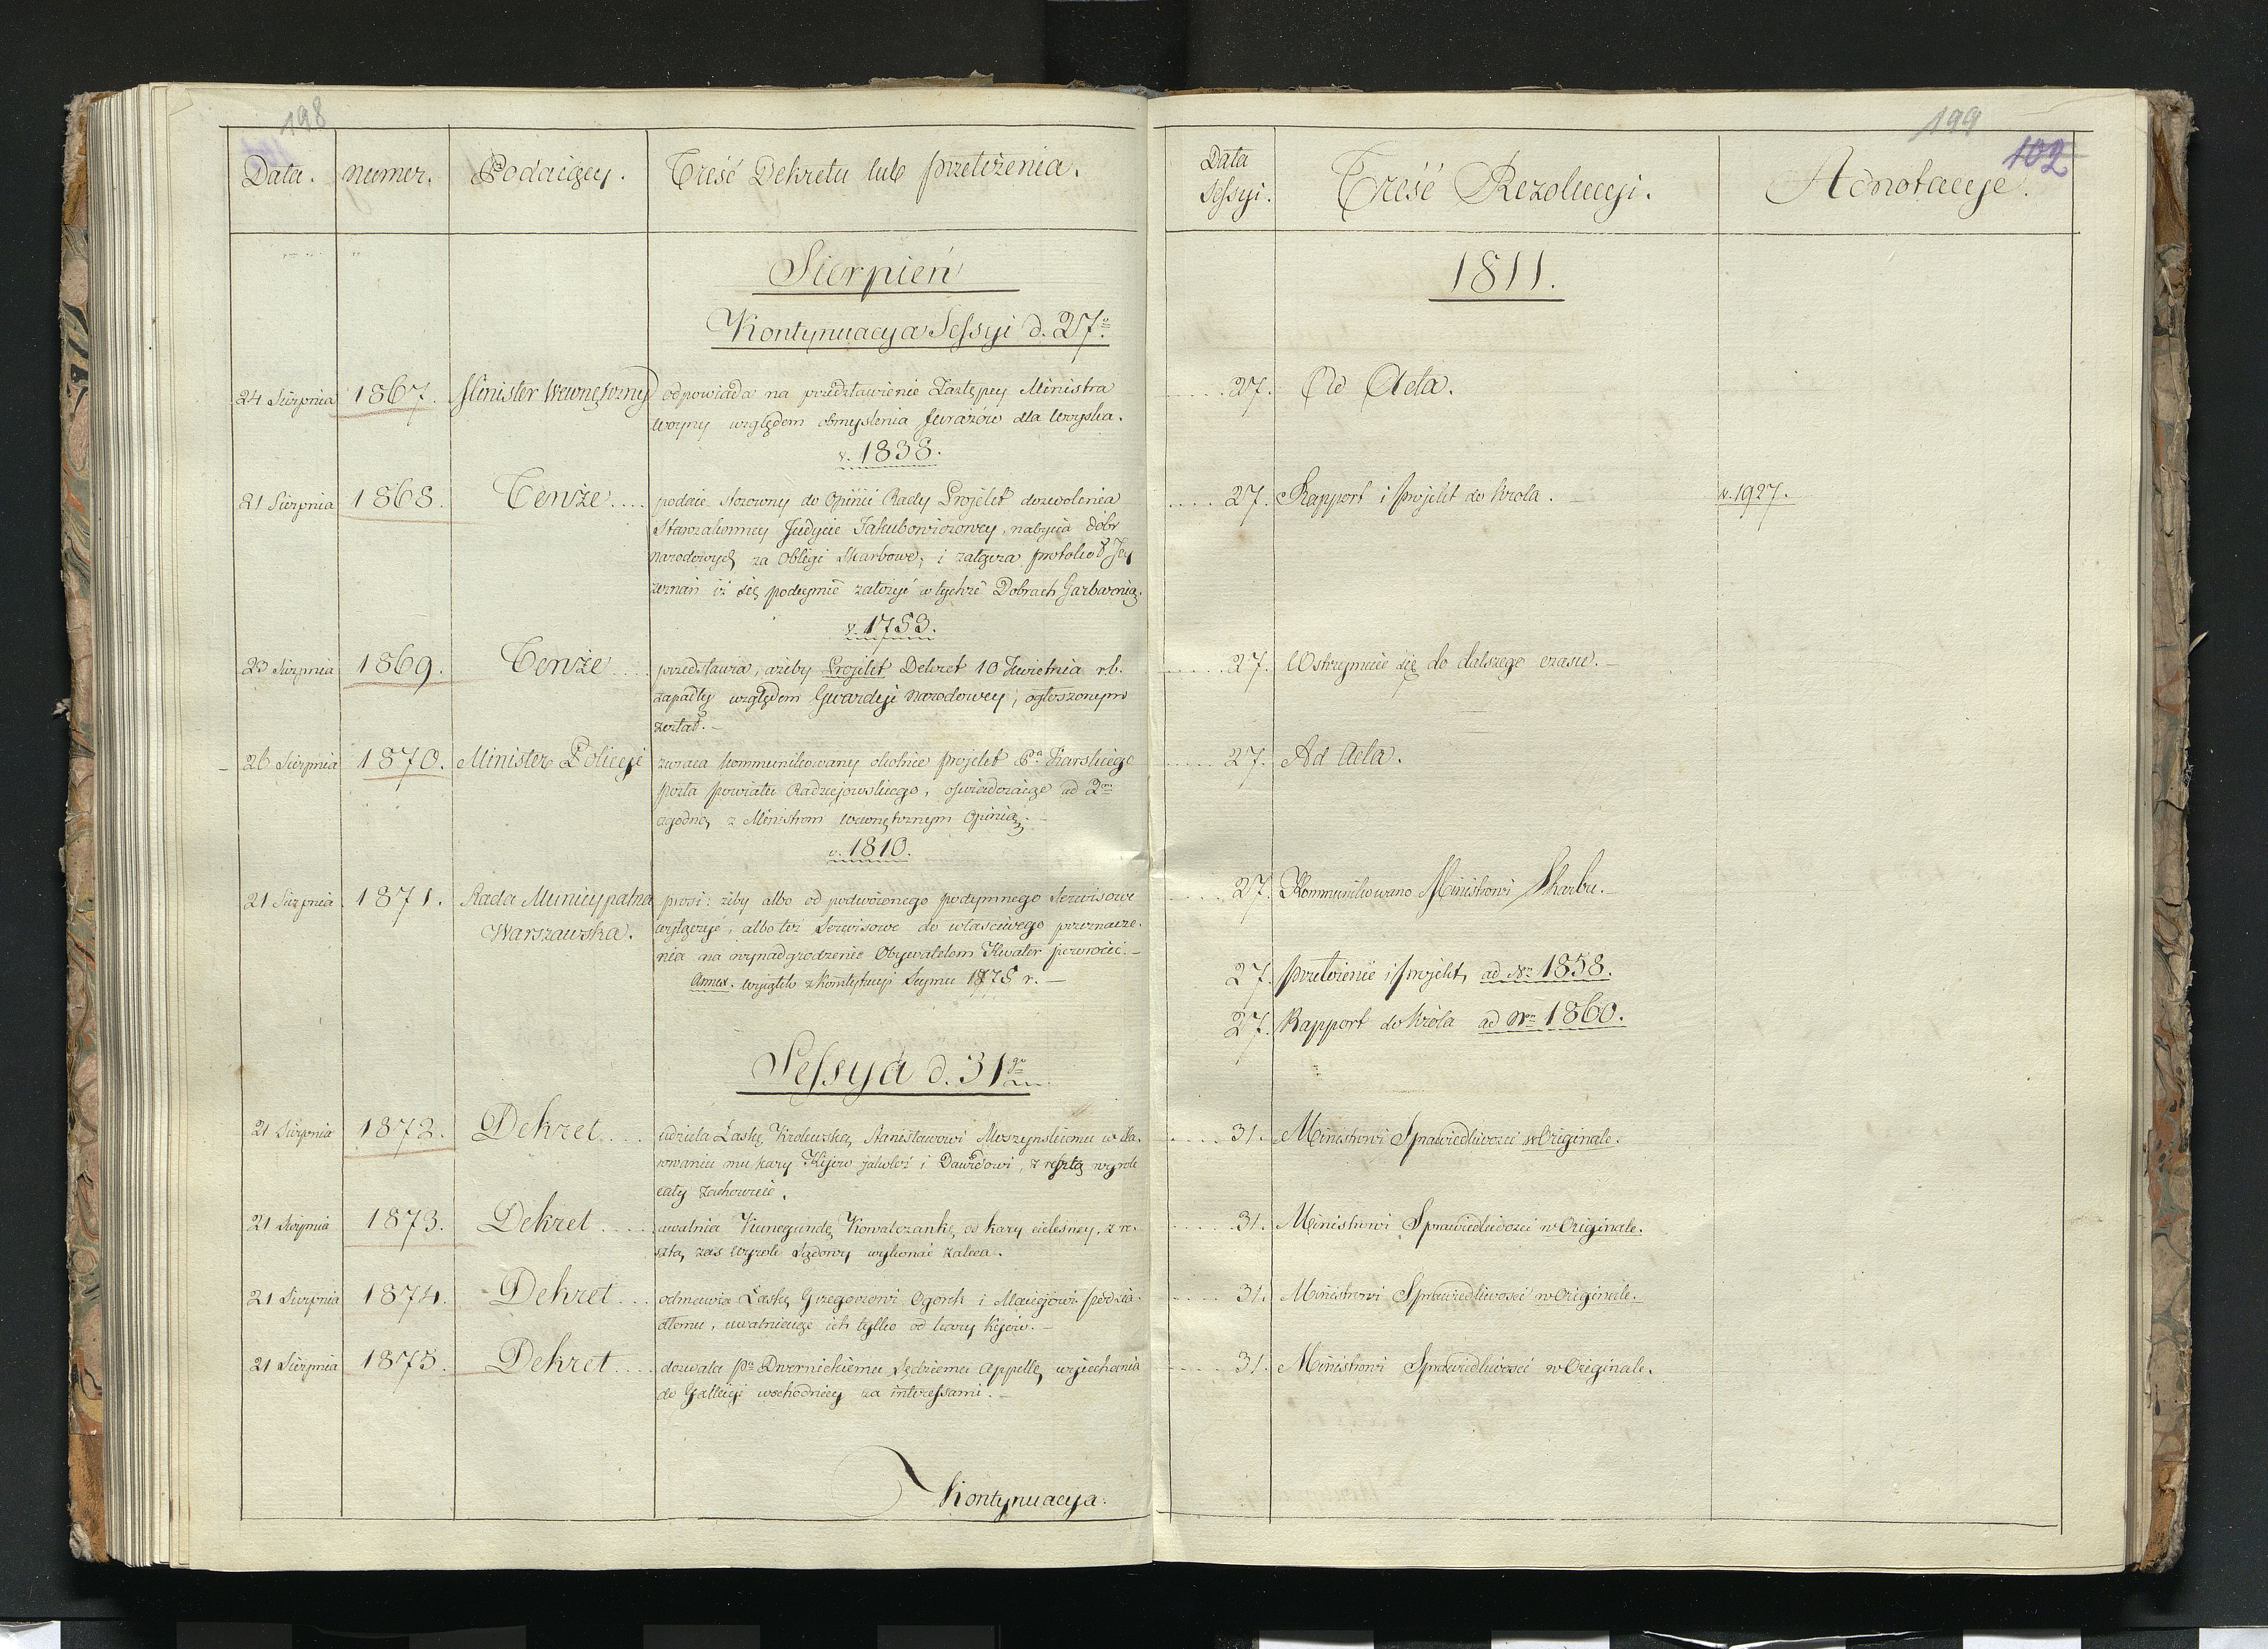 198
Data.
numer.
Podaiący.
Treść Dekretu lub przełożenia.
Sierpień
Kontynuacya Sessyi d. 27º
24 Sierpnia
1867.
Minister Wewnętrzny
odpowiada na przedstawienie Zastępcy Ministra
Woyny względem obmyślenia furażów dla Woyska.
v. 1838.
21 Sierpnia
1868.
Tenże....
podaie stosowny do Opinii Rady Projekt dozwolenia
Starozakonney Judycie Jakubowiczowey, nabycia dóbr
Narodowych za Obligi Skarbowe, i załącza protokoł Jey
zeznań iż się podeymie założyć w tychże Dobrach Garbarnią.
v. 1753.
23 Sierpnia
1869.
Tenże....
przedstawia, ażeby Projekt Dekret 10 Kwietnia r.b.
zapadły względem Gwardyi Narodowey, ogłoszonym
został.-
26 Sierpnia
1870.
Minister Policyi
zwraca kommunikowany okolnie projekt Pa Karskiego
posła powiatu Radziejowskiego, oświadczaiąc ad 2m
zgodną z Ministrem wewnętrznym Opinią.-
v. 1810.
21 Sierpnia
1871.
Rada Municypalna
Warszawska.
prosi: żeby albo od podwóionego podymnego Serwisowe
wyłączyć, albo też Serwisowe do właściwego przeznacze-
nia na wynadgrodzenie Obywatelom Kwater powrócić.-
Annex. wyiątek z konstytucyi Seymu 1775 r.-
Sessya d. 31go
21 Sierpnia
1872.
Dekret....
udziela Łaskę Krolewską Stanisławowi Moszynskiemu w da-
rowaniu mu kary Kijow jakoteż i Dawidowi, z resztą wyrok
cały zachowuie.
21 Sierpnia
1873.
Dekret....
uwalnia Kunegundę Kowalczankę od kary cielesney, z re-
sztą zaś Wyrok Sądowy wykonać zaleca.
21 Sierpnia
1874.
Dekret...
odmawia Łaskę Grzegorzowi Ogorek i Maciejowi
uwalniaiąc ich tylko od kary Kijow.-
21 Sierpnia
1875.
Dekret....
dozwala Pu Dwernickiemu Sędziemu Appell. wyiechania
do Gallicyi wschodniey za interessami.-
Kontynuacya.
199
102
Data
Sessyi.
Treść Rezolucyi.
Adnotacye.
1811.
27.
Ad Acta.
27.
Rapport i projekt do Krola.
v. 1927.
27.
Wstrzymuie się do dalszego czasu.-
27.
Ad Acta.
27.
Kommunikowano Ministrowi Skarbu.-
27.
przełożenie i projekt, ad Nm 1858.
27.
Rapport do Króla ad Nm 1860.
31.
Ministrowi Sprawiedliwości w Originale.
31.
Ministrowi Sprawiedliwości w Originale.
31.
Ministrowi Sprawiedliwości w Originale.
31.
Ministrowi Sprawiedliwości w Originale.